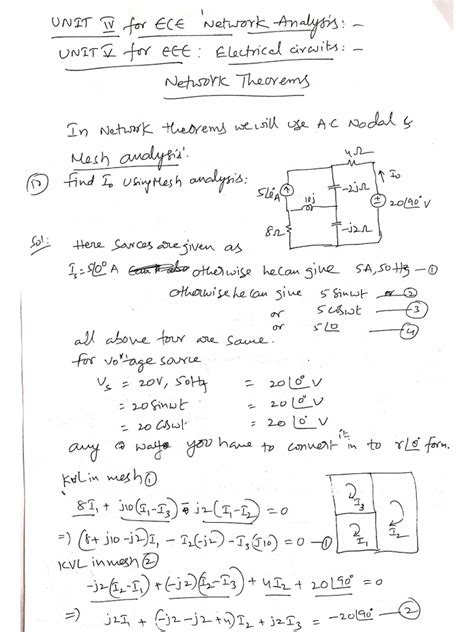 UNIT IV for ECE 'Network Analysis: -
UNIT V for EEE : Electrical circuits: -
Network Theorems
In Network theorems we will use AC Nodal &
Mesh analysis'.
find I₀ using Mesh analysis:
4Ω
5∠0°A
10j
-2jΩ
I₀
20∠90° V
8Ω
-j2Ω
Sol:
Here Sources are given as
I_s = 5∠0° A otherwise he can give 5A, 50Hz - ①
otherwise he can give 5 sinωt - ②
or 5 cosωt - ③
or 5∠0 - ④
all above four are same.
for voltage source
V_s = 20V, 50Hz = 20∠0° V
= 20 sinωt = 20∠0° V
= 20 cosωt = 20∠0° V
any ways you have to convert it in to r∠θ form.
KVL in mesh ①
8I₁ + j10(I₁-I₃) - j2(I₁-I₂) = 0
=) (8+j10-j2)I₁ - I₂(-j2) - I₃(j10) = 0 - ①
I₃
I₁
I₂
KVL in mesh ②
-j2(I₂-I₁) + (-j2)(I₂-I₃) + 4I₂ + 20∠90° = 0
=) j2I₁ + (-j2-j2+4)I₂ + j2I₃ = -20∠90° - ②